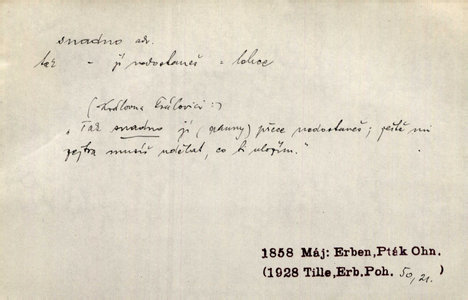 snadno adv.
tak - jí nedostaneš = lehce
(Královna královici :)
„Tak snadno jí (panny) přece nedostaneš; ještě mi
zejtra musíš udělat, co ti uložím."
1858 Máj: Erben, Pták Ohn.
(1928 Tille, Erb. Poh. 50, 21.)